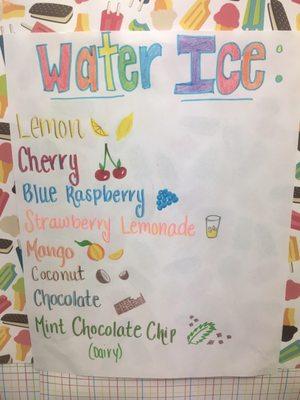 Water Ice:
Lemon
Cherry
Blue Raspberry
Strawberry Lemonade
Mango
Coconut
Chocolate
Mint Chocolate Chip
(Dairy)